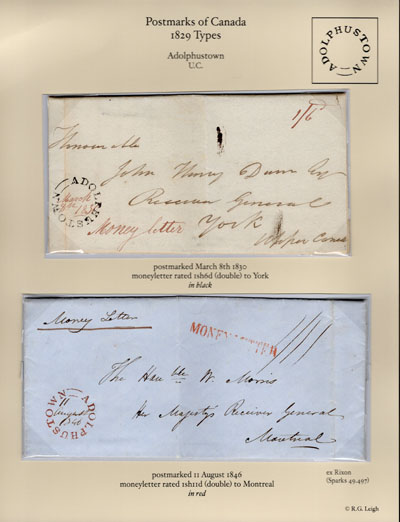 Postmarks of Canada
1829 Types
Adolphustown
U.C.
ADOLPHUSTOWN
1/6
Honourable
John Henry Dunn Esqr
Receiver General
ADOLPHUSTOWN
March
8th 1830
Money letter York
Upper Canada
postmarked March 8th 1830
moneyletter rated 1sh6d (double) to York
in black
Money Letter
MONEY LETTER
The Honble W. Morris
Her Majesty's Receiver General
Montreal
ADOLPHUSTOWN
11
August
1846
postmarked 11 August 1846
moneyletter rated 1sh11d (double) to Montreal
in red
ex Rixon
(Sparks 49.497)
© R.G. Leigh